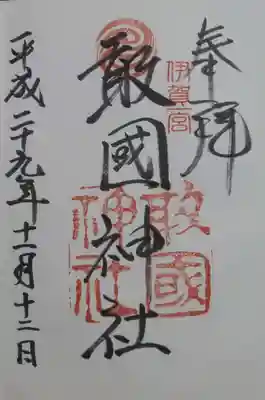 奉拝
伊賀一宮
敢國神社
敢國神社
平成二十九年十一月十二日